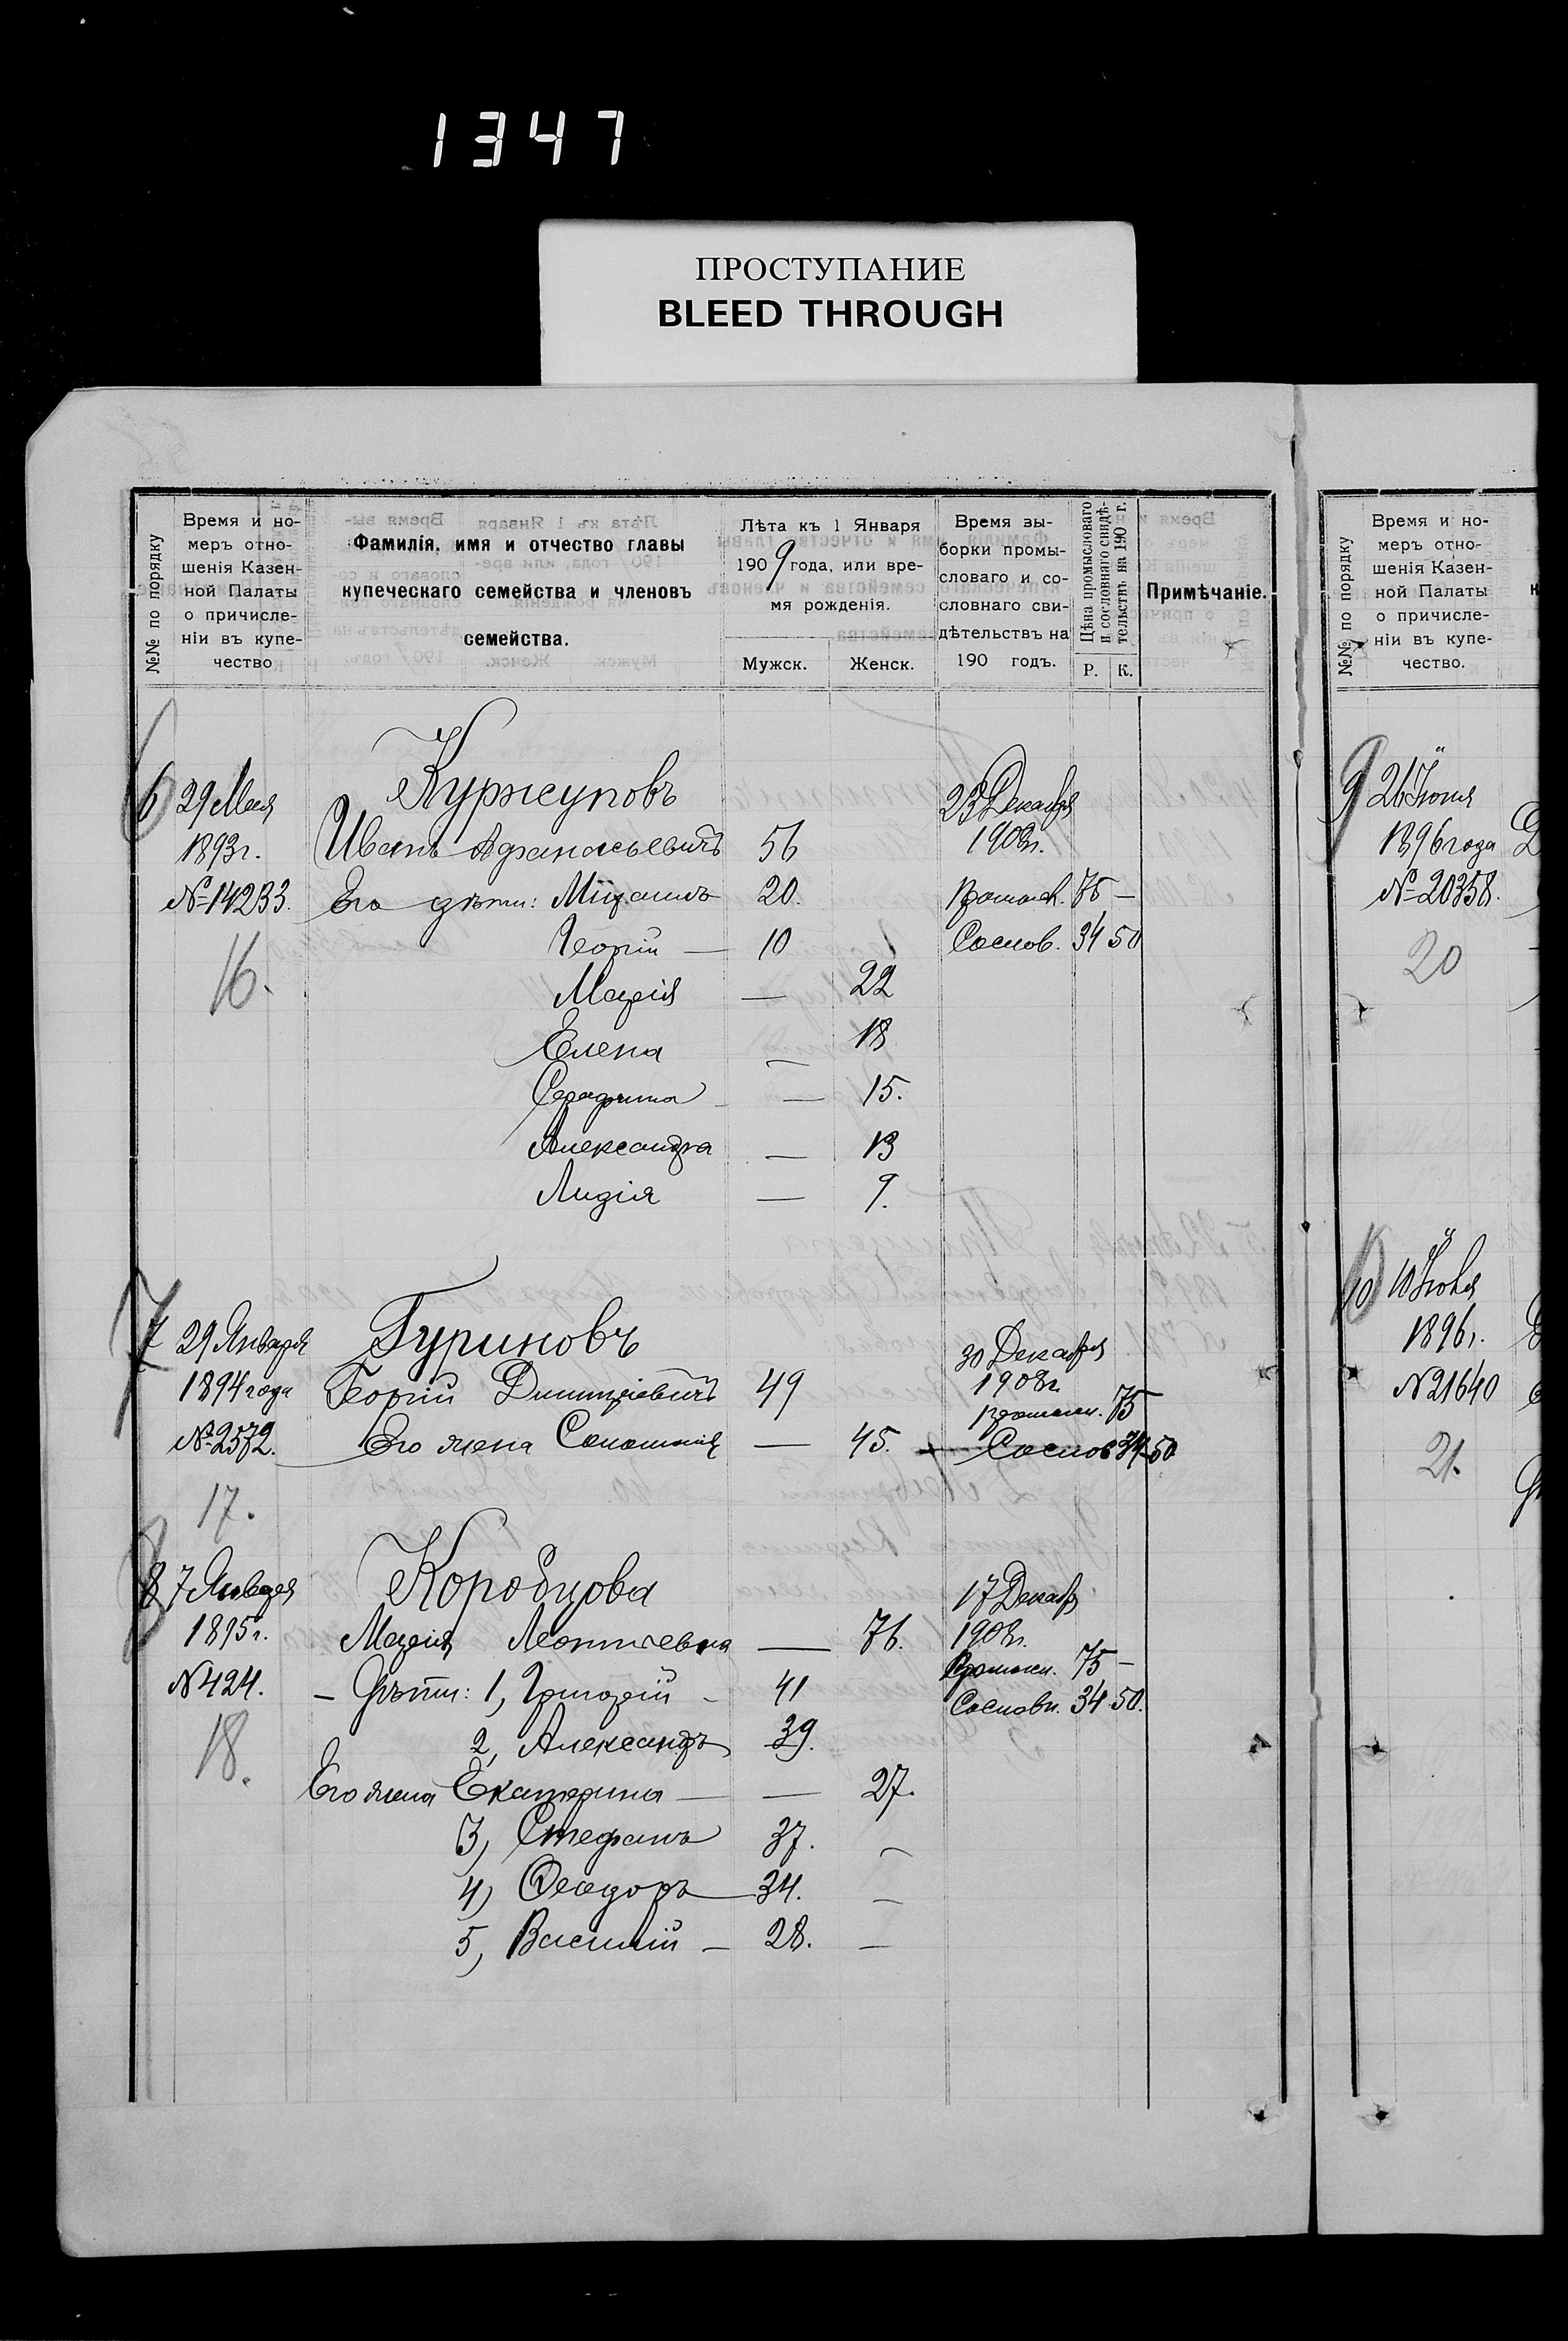 1347
ПРОСТУПАНИЕ
BLEED THROUGH
№№ по порядку
Время и но-
меръ отно-
шенія Казен-
ной Палаты
о причисле-
ніи въ купе-
чество
Фамилія, имя и отчество главы
купеческаго семейства и членовъ
семейства.
Лѣта къ 1 Января
1909 года, или вре-
мя рожденія.
Мужск. Женск.
Время вы-
борки промы-
словаго и со-
словнаго сви-
дѣтельствъ на
190 годъ.
Цѣна промысловаго
и сословнаго свидѣ-
тельствъ на 190 г.
Р. К.
Примѣчаніе.
6 29 Мая Куржуповъ 23 Декабря
1893 г. Иванъ Афанасьевичъ 56 1908 г.
№ 14233. Его дѣти: Михаилъ 20. Промысл. 75 —
16. Георгій — 10 Сослов. 34 50
Марія — 22
Елена — 18
Серафима — 15.
Александра — 13
Лидія — 9.
7 29 Января Гуриновъ 30 Декабря
1894 года Георгій Димитріевичъ 49 1908 г.
Промысл. 75
№ 2572. Его жена Соломонія — 45. Сослов 34 50
17.
8 7 Января Коробцова 17 Декабр
1895 г. Марія Леонтьевна — 76. 1908 г.
Промысл. 75 —
№ 424. — Дѣти: 1, Григорій — 41
Сословн. 34 50.
18. 2, Александръ 39.
Его жена Екатерина — — 27.
3, Стефанъ 37. —
4, Ѳеодоръ — 34. —
5, Василій — 28. —
№№ по порядку
Время и но-
меръ отно-
шенія Казен-
ной Палаты
о причисле-
ніи въ купе-
чество.
9 26 Іюня
1896 года
№ 20358.
20
10 10 Іюля
1896 г.
№ 21640
21.